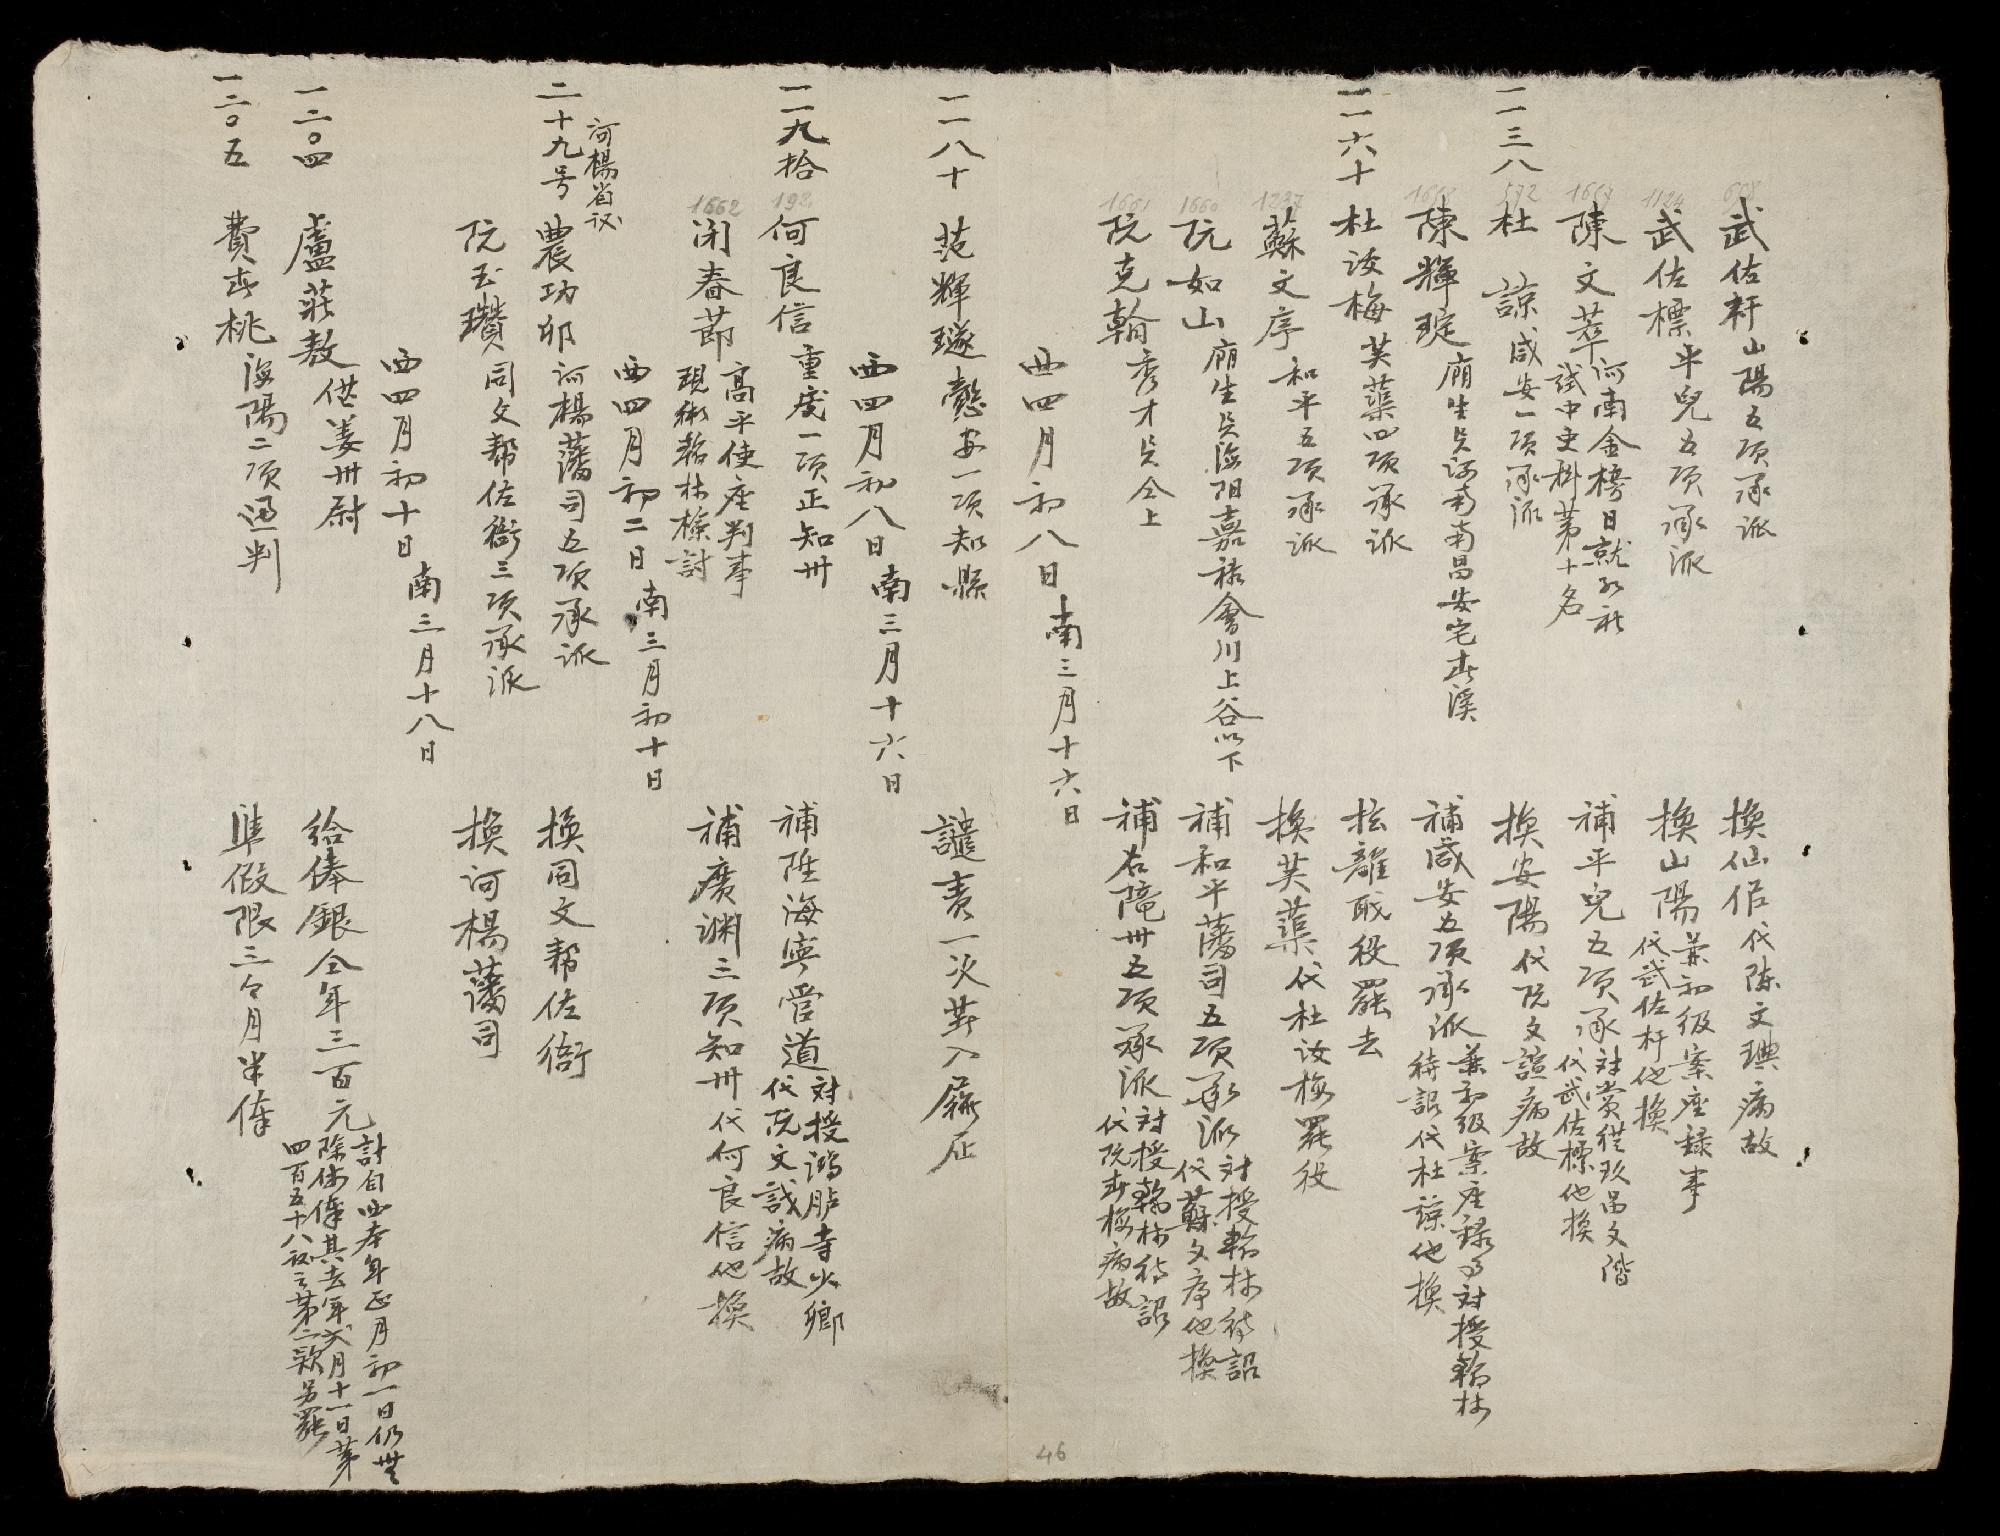 武佐衦山陽五項承派
換仙侶代陳文璵病故
武佐標平皃五項承派
換山陽兼初級案座録事
代武佐杆他換
陳文萃河南金榜日就社
試中史科第十名
補平皃五項承派
対賞從玖品文階
代武佐標他換
一一三八
杜諒咸安一項承派
換安陽代阮文諠病故
陳輝琔廂生貝河南南昌安宅春溪
補咸安五項承派兼初級案座録事対授翰林
待詔代杜諒他換
一一六十
杜汝梅芙蕖四項承派
抎離职役罷去
蘇文序和平五項承派
換芙蕖代杜汝梅罷役
阮如山廂生貝海阳嘉禄會川上谷以下
補和平藩司五項承派
対授翰林待詔
代蘇文序他換
阮克翰秀才貝仝上
補右隴州五項承派
対授翰林待詔
代阮春梅病故
西四月初八日南三月十六日
一一八十
范輝璲慤安一項知縣
譴責一次著入履歷
西四月初八日南三月十六日
一一九拾
何良信重慶一項正知州
補陞海寧管道
対授鴻胪寺少卿
代阮文誠病故
闭春節
高平使座判事
現銜翰林檢討
補廣渊三項知州代何良信他換
西四月初二日南三月初十日
河楊省议
二十九号
農功邦河楊藩司五項承派
換同文帮佐衙
阮玉瓚同文帮佐衙三項承派
換河楊藩司
西四月初十日南三月十八日
一二〇四
盧莊敖偕姜州尉
給俸銀仝年三百元
計自西本年正月初一日仍無
除他俸其去年弍月十一日第
四百五十八议之第二款另罷
一三〇五
費春桃海陽二項通判
準假限三个月半俸
668
1124
1667
572
1668
1237
1660
1661
192
1662
46